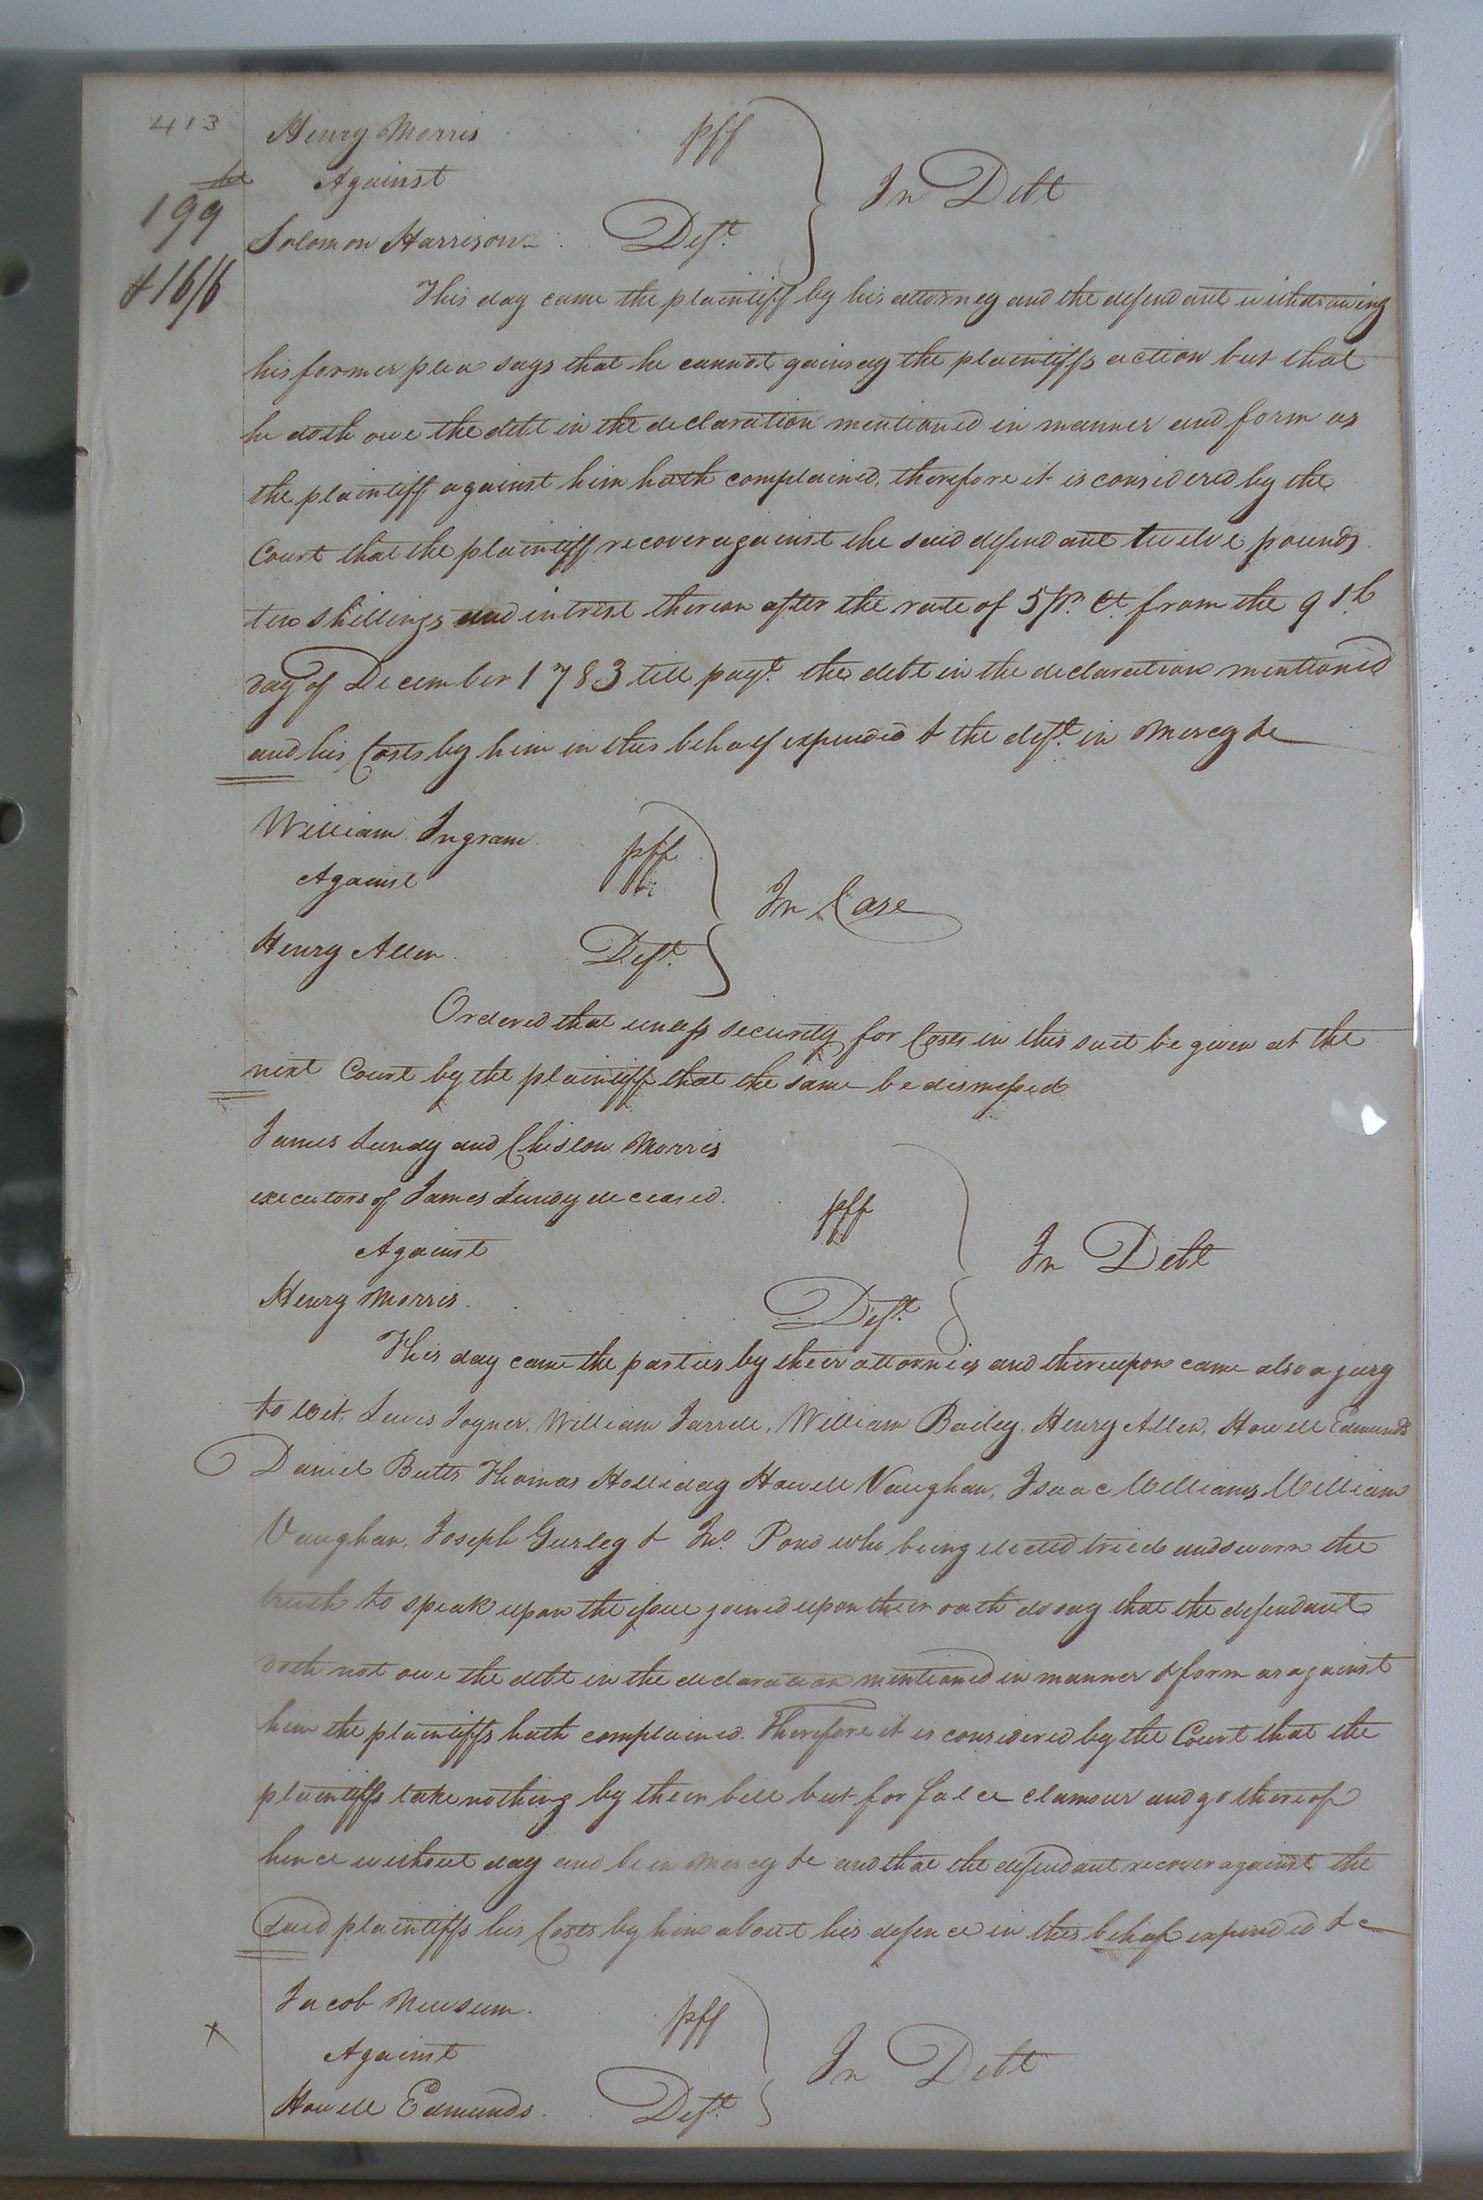 413
Henry Morris pff
Against
In Debt
199
Solomon Harrison Deft.
& 16/6
This day came the plaintiff by his attorney and the defendant withdrawing
his former plea says that he cannot gainsay the plaintiffs action but that
he doth owe the debt in the declaration mentioned in manner and form as
the plaintiff against him hath complained, therefore it is considered by the
Court that the plaintiff recover against the said defendant twelve pounds
ten shillings and intrest thereon after the rate of 5 Pr. Ct. from the 9th
day of December 1783 till payt. the debt in the declaration mentioned
and his Costs by him in this behalf expended & the deft. in Mercy &c
William Ingram pff
Against
In Case
Henry Allen Deft.
Ordered that unless security for Costs in this suit be given at the
next Court by the plaintiff that the same be dismissed
James Lundy and Chislon Morris
executors of James Lundy deceased. pff
Against
In Debt
Henry Morris Deft.
This day came the parties by their attornies and thereupon came also a jury
to Wit, Lewis Joyner, William Farrell, William Bailey, Henry Allen, Howell Edmunds
Daniel Butts Thomas Holliday Howell Vaughan, Isaac Williams William
Vaughan, Joseph Gurley & Jno. Pond who being elected tried and sworn the
truth to speak upon the issue joined upon their oath do say that the defendant
doth not owe the debt in the declaration mentioned in manner & form as against
him the plaintiffs hath complained. Therefore it is considered by the Court that the
plaintiffs take nothing by their bill but for false clamour and go thereof
hence without day and be in Mercy &c and that the defendant recover against the
said plaintiffs his Costs by him about his defence in this behalf expended &c
Jacob Newsum pff
x
Against
In Debt
Howell Edmunds Deft.